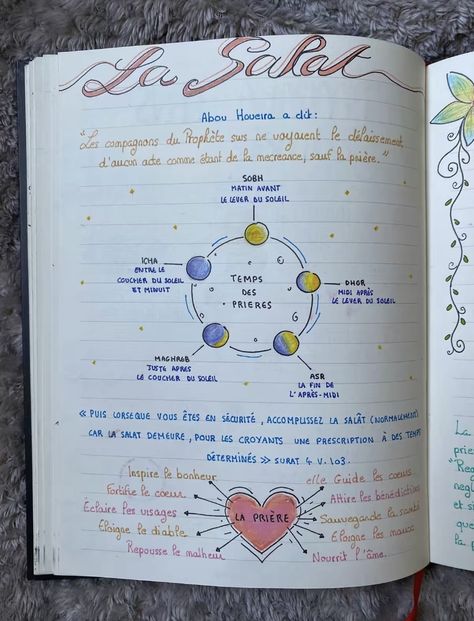 La Salat
Abou Houeira a dit:
"Les compagnons du Prophète sws ne voyaient le délaissement
d'aucun acte comme étant de la mecreance, sauf la prière."
SOBH
MATIN AVANT
LE LEVER DU SOLEIL
ICHA
ENTRE LE
COUCHER DU SOLEIL
ET MINUIT
TEMPS
DES
PRIERES
DHOR
MIDI APRÈS
LE LEVER DU SOLEIL
MAGHREB
JUSTE APRES
LE COUCHER DU SOLEIL
ASR
LA FIN DE
L'APRÈS-MIDI
« PUIS LORSEQUE VOUS ÊTES EN SÉCURITÉ, ACCOMPLISSEZ LA SALÂT (NORMALEMENT)
CAR LA SALAT DEMEURE, POUR LES CROYANTS UNE PRESCRIPTION À DES TEMPS
DÉTERMINÉS » SURAT 4 V.103.
Inspire le bonheur
Fortifie le coeur
Éclaire les visages
Éloigne le diable
Repousse le malheur
LA PRIÈRE
elle Guide les coeurs
Attire les bénédictions
Sauvegarde la santé
Eloigne les maux
Nourrit l'âme.
La
prie
"Re
negl
et si
que
la p